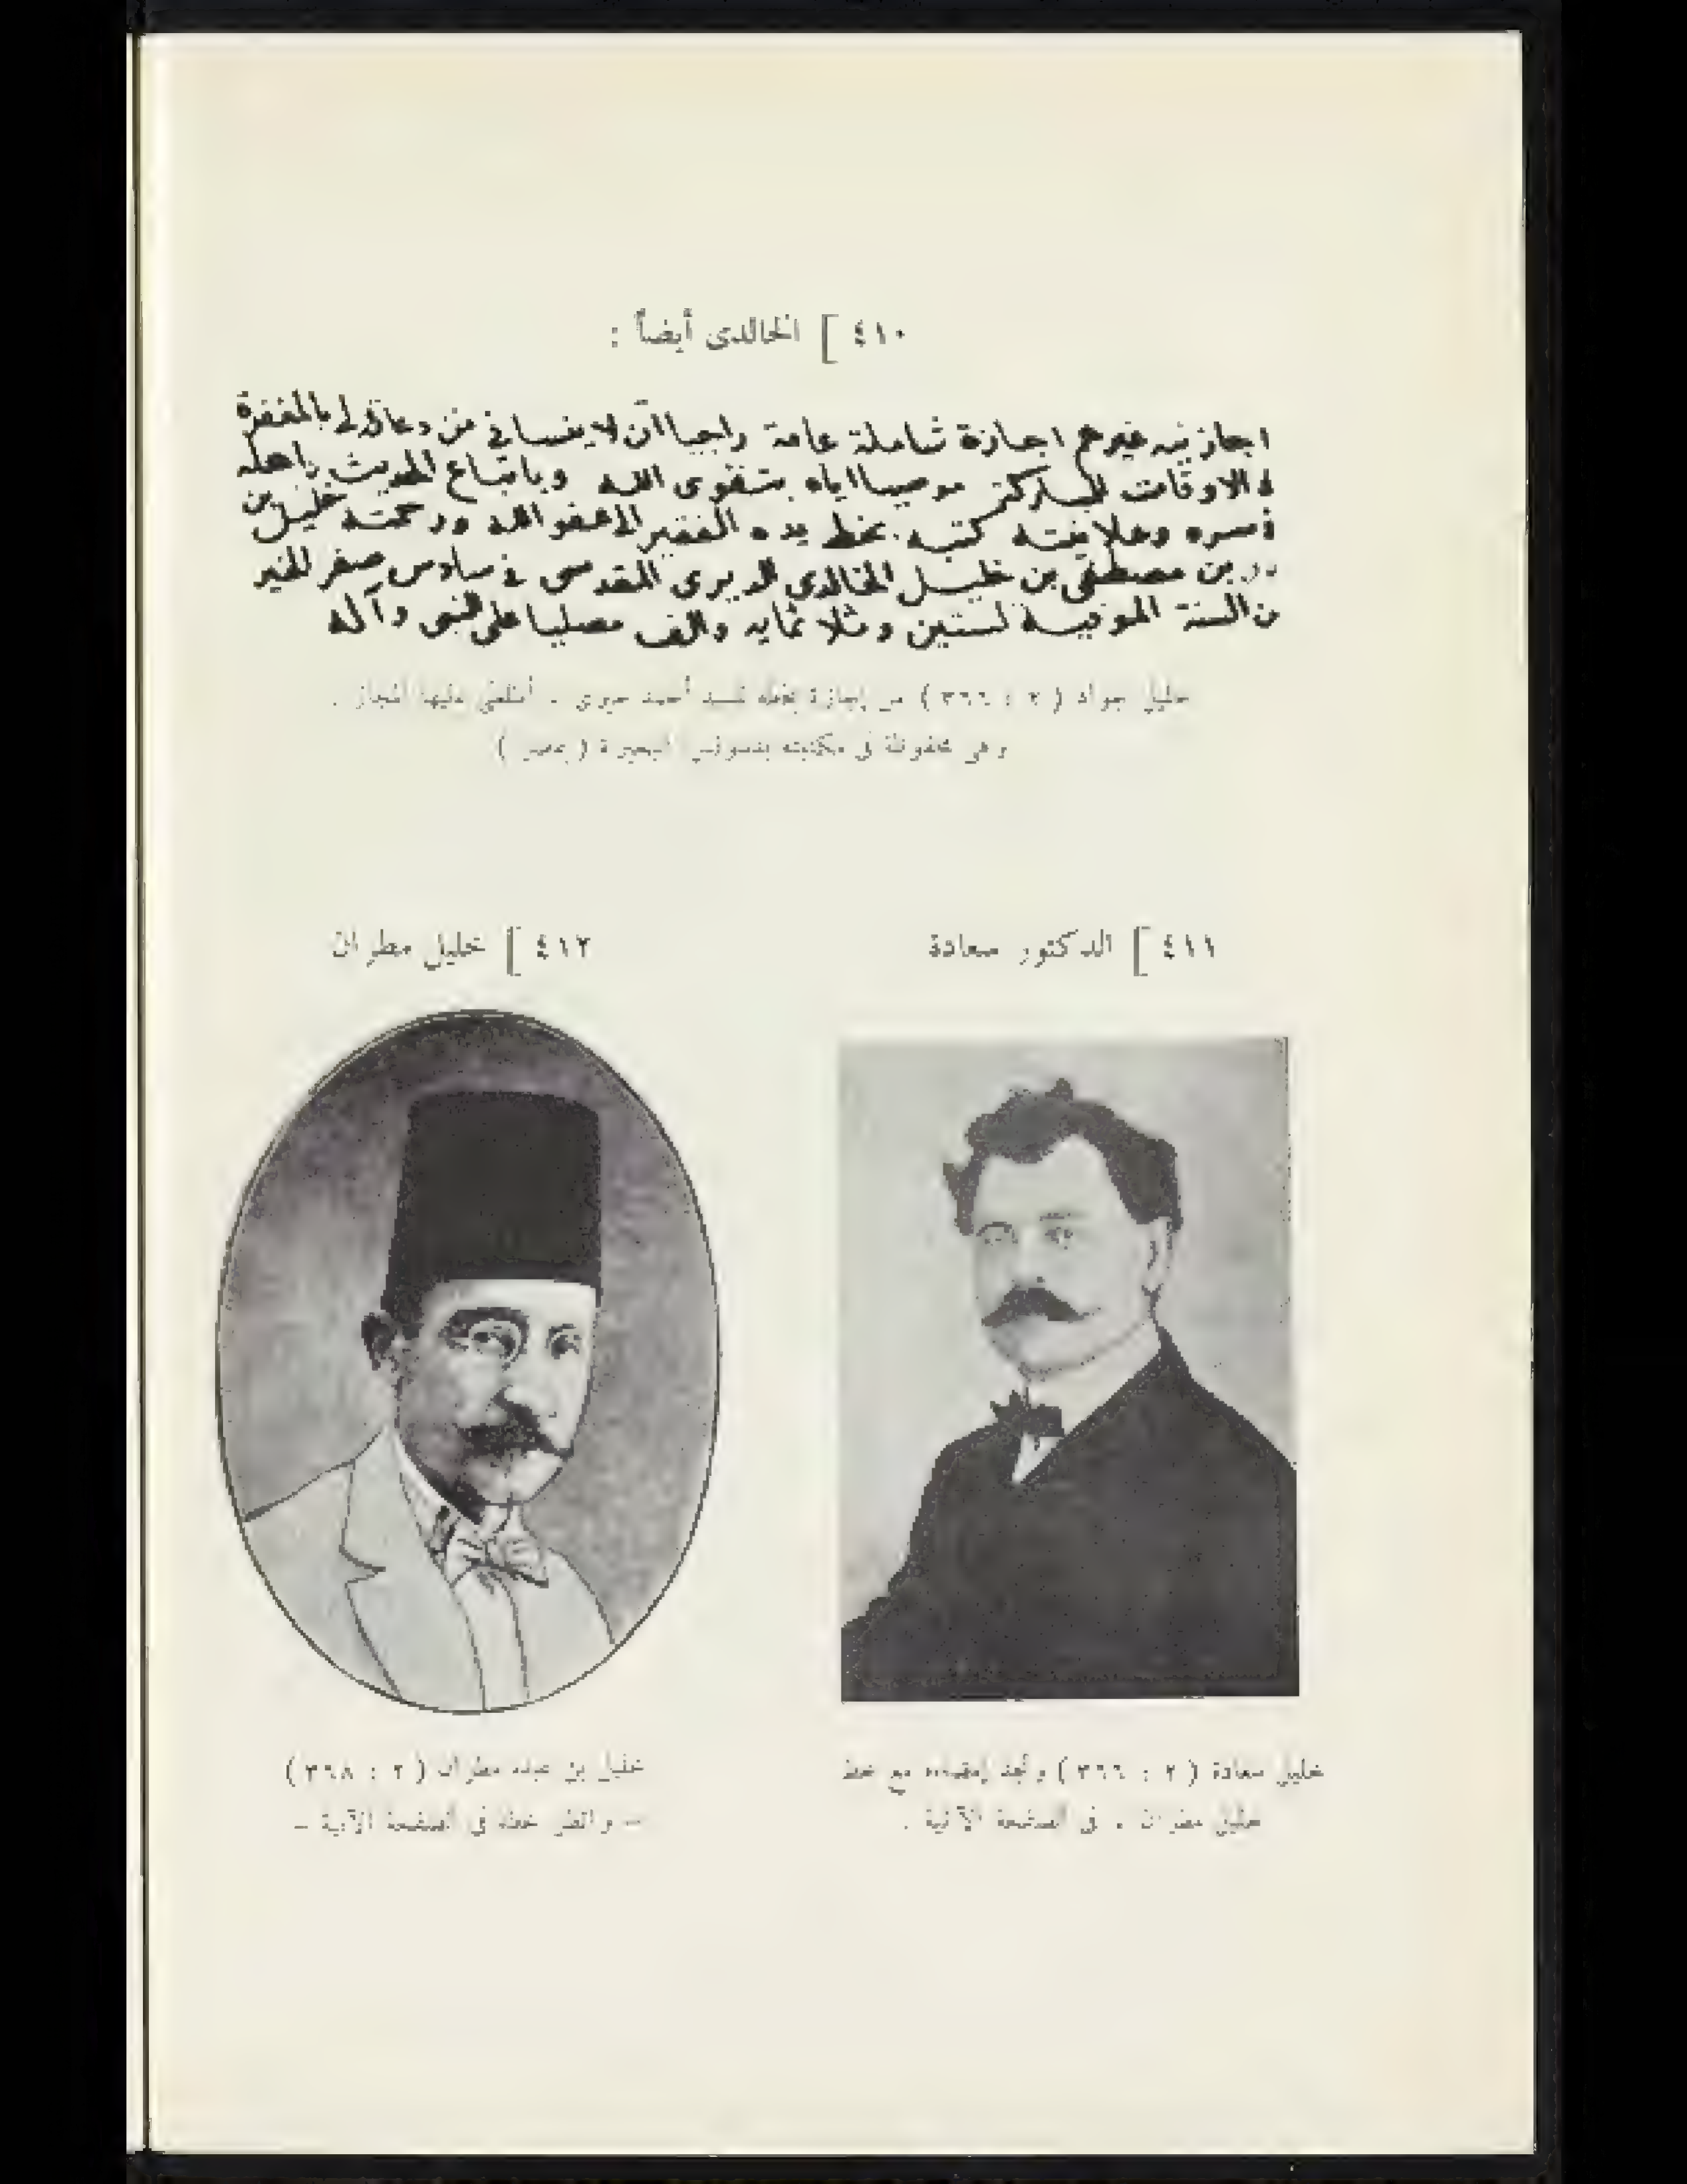 ٤١٠ ] الخالدى أيضاً :
اجازنيه غيرهم اجازة شاملة عامة راجيا ان لا ينساني من دعائه لي بالمغفرة
الاوقات المباركة موصيا اياه بتقوى الله وباتباع الحديث
سره وعلانيته كتبه بخط يده الفقير الى عفو الله ورحمته خليل بن
بن مصطفى بن خليل الخالدي الديرى المقدسى في سادس صفر الخير
من السنة الموفية لستين وثلاثمايه والف مصليا على النبى وآله
خليل جواد ( ٢ : ٣٦٦ ) من إجازة بخطه للسيد أحمد خيرى ، أطلعنى عليها المجاز .
وهى محفوظة فى مكتبته البحيرة ( بمصر )
٤١١ ] الدكتور سعادة
٤١٢ ] خليل مطران
خليل سعادة ( ٢ : ٣٦٦ ) وتجد إمضاءه مع خط
خليل مطران ، فى الصفحة الآتية .
خليل بن عبده مطران ( ٢ : ٣٦٨ )
– وانظر خطه فى الصفحة الآتية –